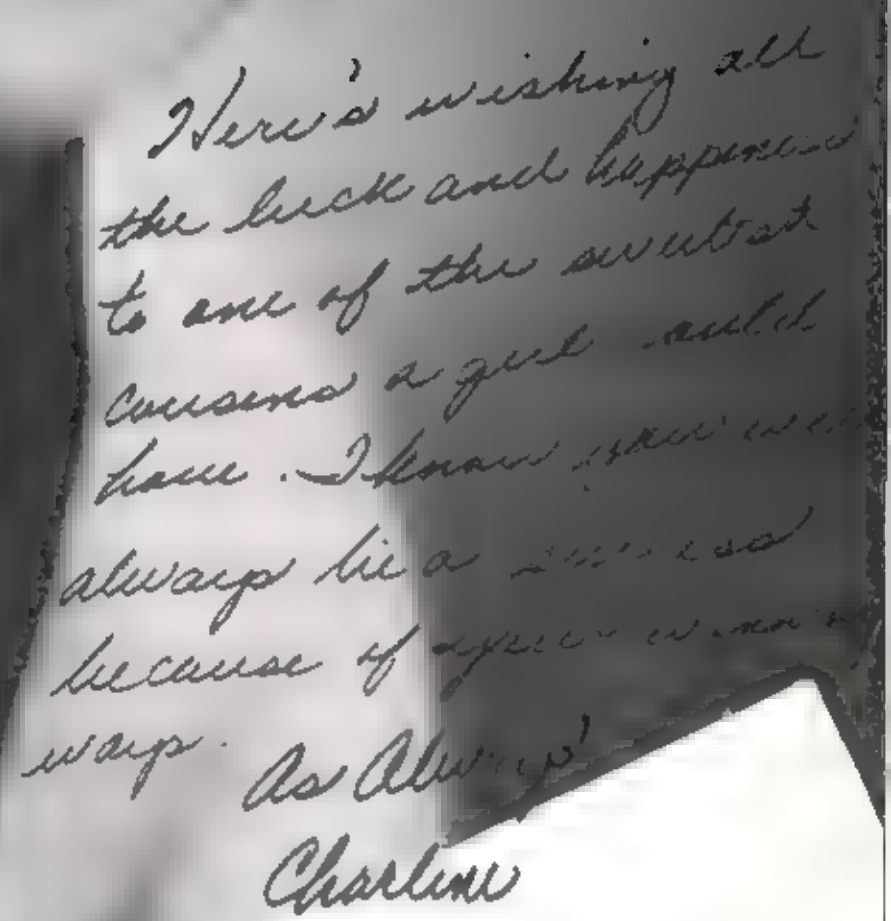 Here's wishing all
the luck and happiness
to one of the sweetest
cousins a girl could
have. I know you will
always be a success
because of your winning
ways.
As Always
Charline